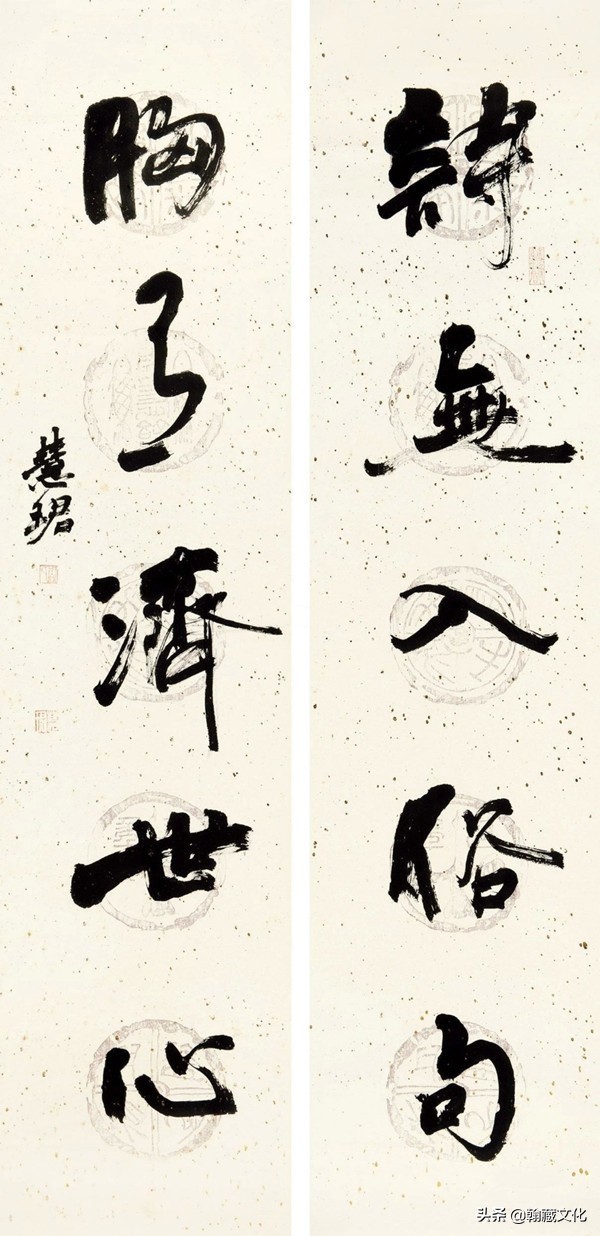 詩無入俗句
胸有濟世心
慧珺
头条 @翰藏文化